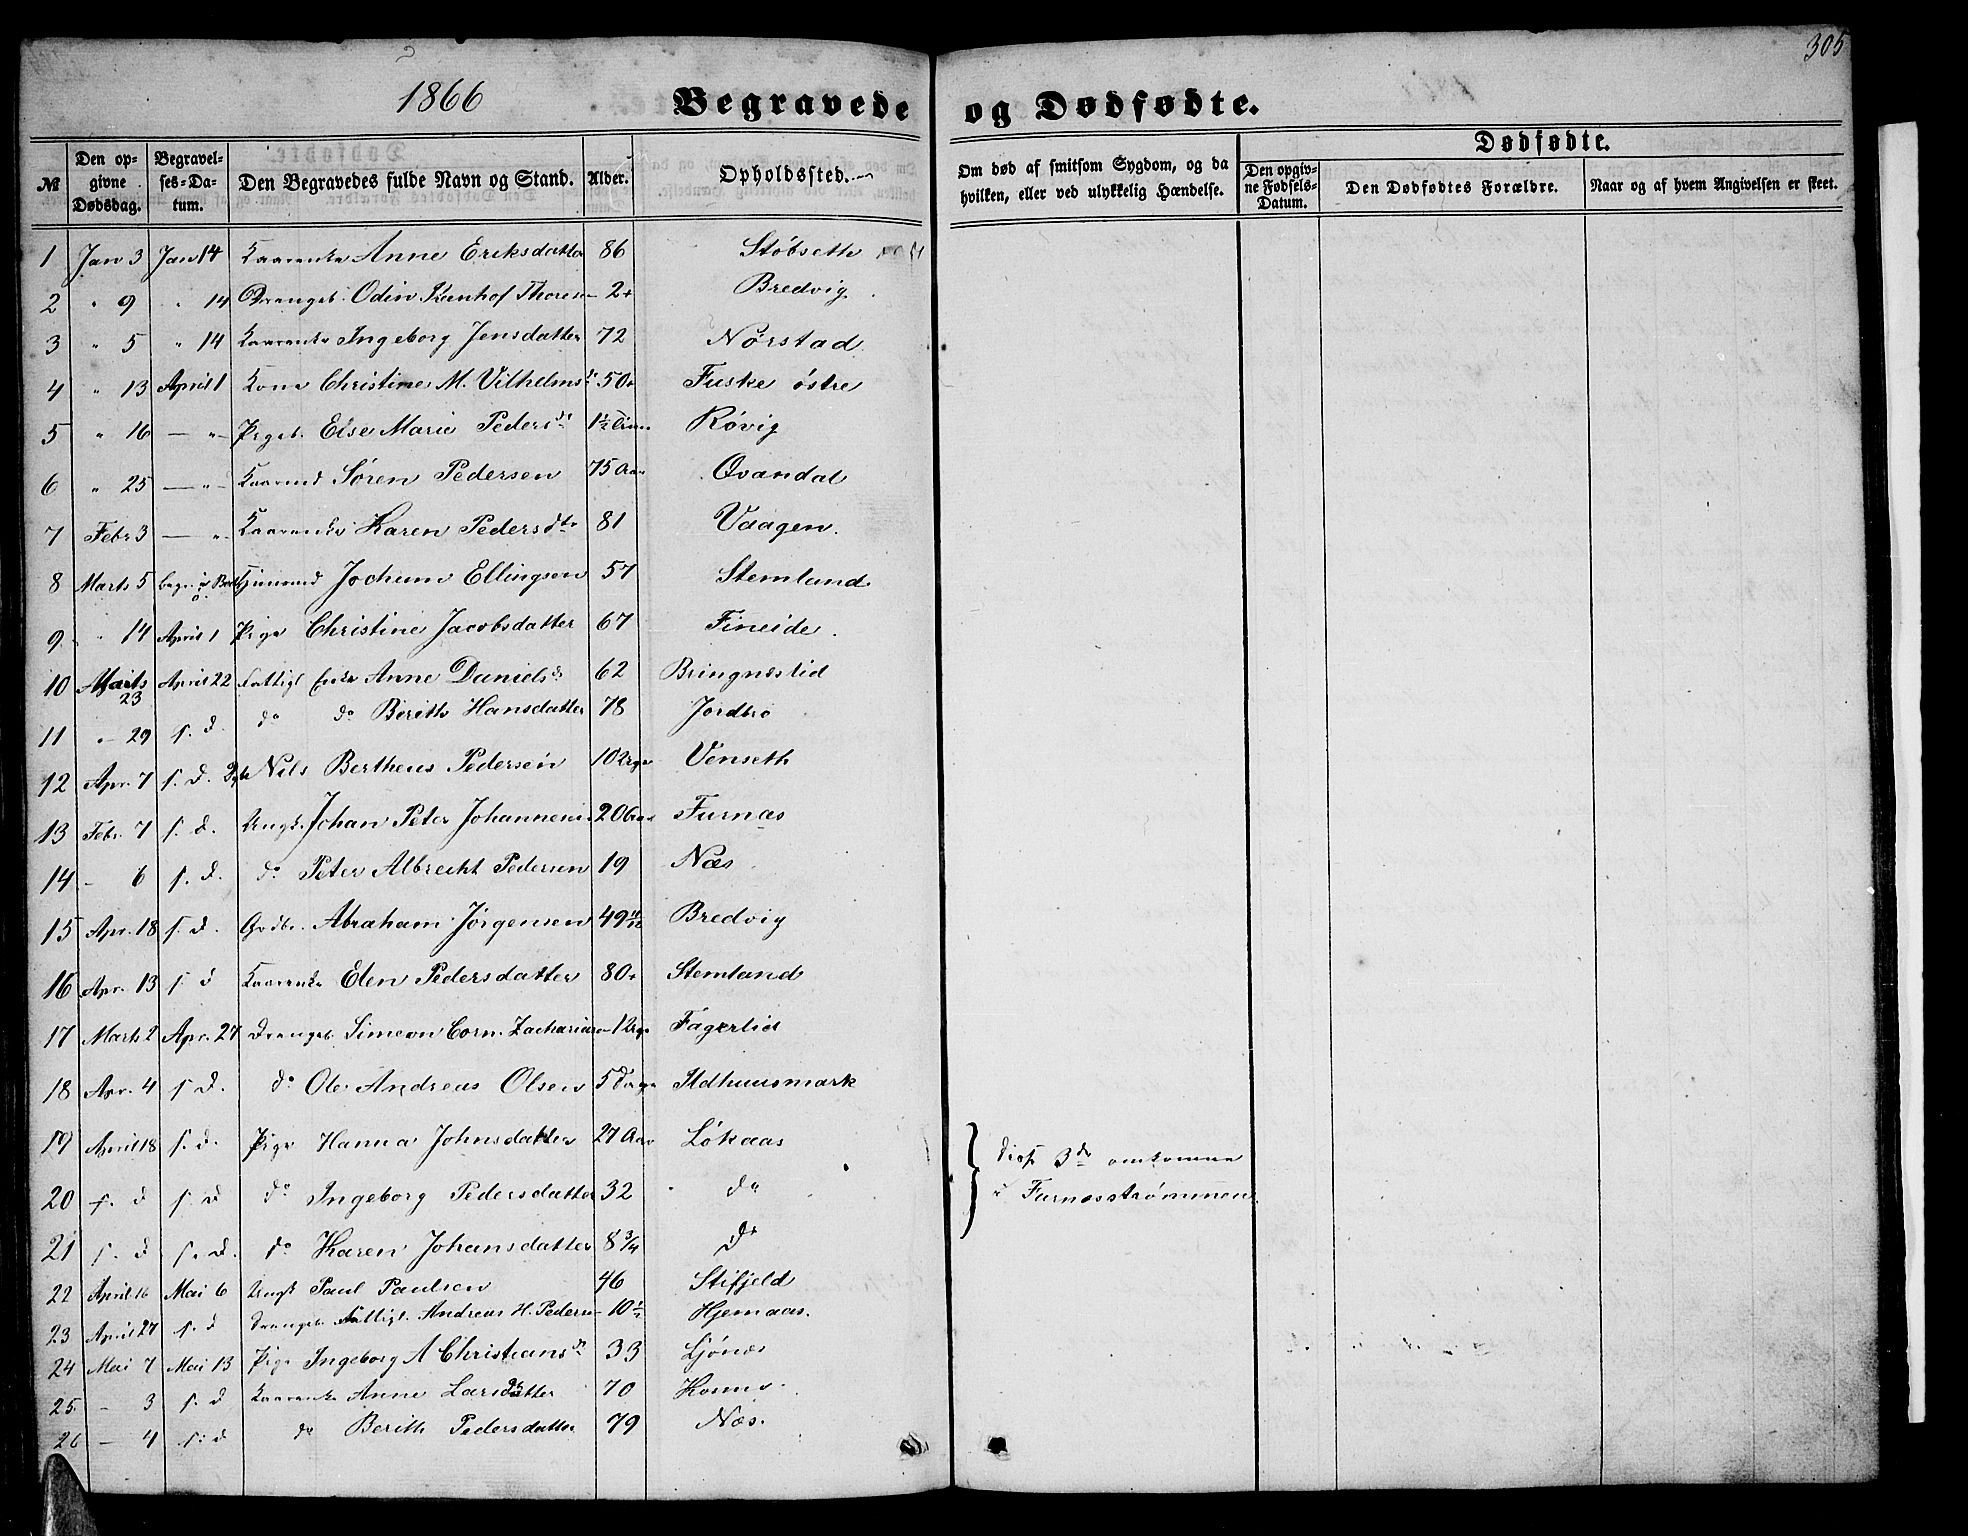 305
1866
Begravede og Dødfødte.
Dødfødte.
№ Den opgivne Dødsdag. Begravelses-Datum. Den Begravedes fulde Navn og Stand. Alder. Opholdssted. Om død af smitsom Sygdom, og da hvilken, eller ved ulykkelig Hændelse. Den opgivne Fødsels-Datum. Den Dødfødtes Forældre. Naar og af hvem Angivelsen er skeet.
1 Jan 3 Jan 14 Kaarenke Anne Eriksdatter 86 Støbseth
2 " 9 " 14 Drengeb. Odin Thoresen 2 Bredvig
3 " 5 " 14 Kaarenke Ingeborg Jensdatter 72 Nørstad
4 " 13 April 1 Kone Christine M. Vilhelmsd 50 Fuske østre
5 " 16 — " — Pigeb. Else Marie Pedersdr 1½ Røvig
6 " 25 — " — Kaarmd Søren Pedersen 75 Aar Qvandal
7 Febr 3 — " Kaarenke Karen Pedersdtr 81 Vaagen.
8 Marts 5 begr. i Bodø Jochum Ellingsen 57 Stemland
9 " 14 April 1 Pige Christine Jacobsdatter 67 Fineide.
10 Marts 23 April 22 Fattigl Enke Anne Danielsd 62 Bringneslid
11 " 29 s. d. do do Berith Hansdatter 78 Jordbro
12 Apr. 7 s. d. Dgb Nils Bertheus Pedersen 10 Uger Venseth
13 Febr. 7 s. d. Ungk. Johan Peter Johannesen 20 Aar Furnæs
14 - 6 s. d. do Peter Albrecht Pedersen 19 Næs
15 Apr. 18 s. d. Gdbr. Abraham Jørgensen 49 11/12 Bredvig
16 Apr. 13 s. d Kaarenke Elen Pedersdatter 80 Stemland
17 Marts 2 Apr. 27 Drengeb. Simeon Corn. Zachariasen 1 Uge Fagerlid
18 Apr. 4 s. d. do Ole Andreas Olsen 5 Dage Ildhuusmark
19 April 18 s. d. Pige Hanna Johnsdatter 27 Aar Løkaas
disse 3de omkomne
20 s. d s. d do Ingeborg Pedersdatter 32 do
i Furnæsstrømmen.
21 s. d s. d. do Karen Johansdatter 8¾ do
22 April 16 Mai 6 Ungk Paul Paulsen 46 Stifjeld
23 April 27 s. d Drengeb. Fattigl. Andreas H. Pedersen 10½ Hjemaas.
24 Mai 7 Mai 13 Pige Ingeborg A Christiansdr 33 Ljønes
25 - 3 s. d Kaarenke Anne Larsdatter 70
26 - 4 s. d do Berith Pedersdatter 79 Næs.